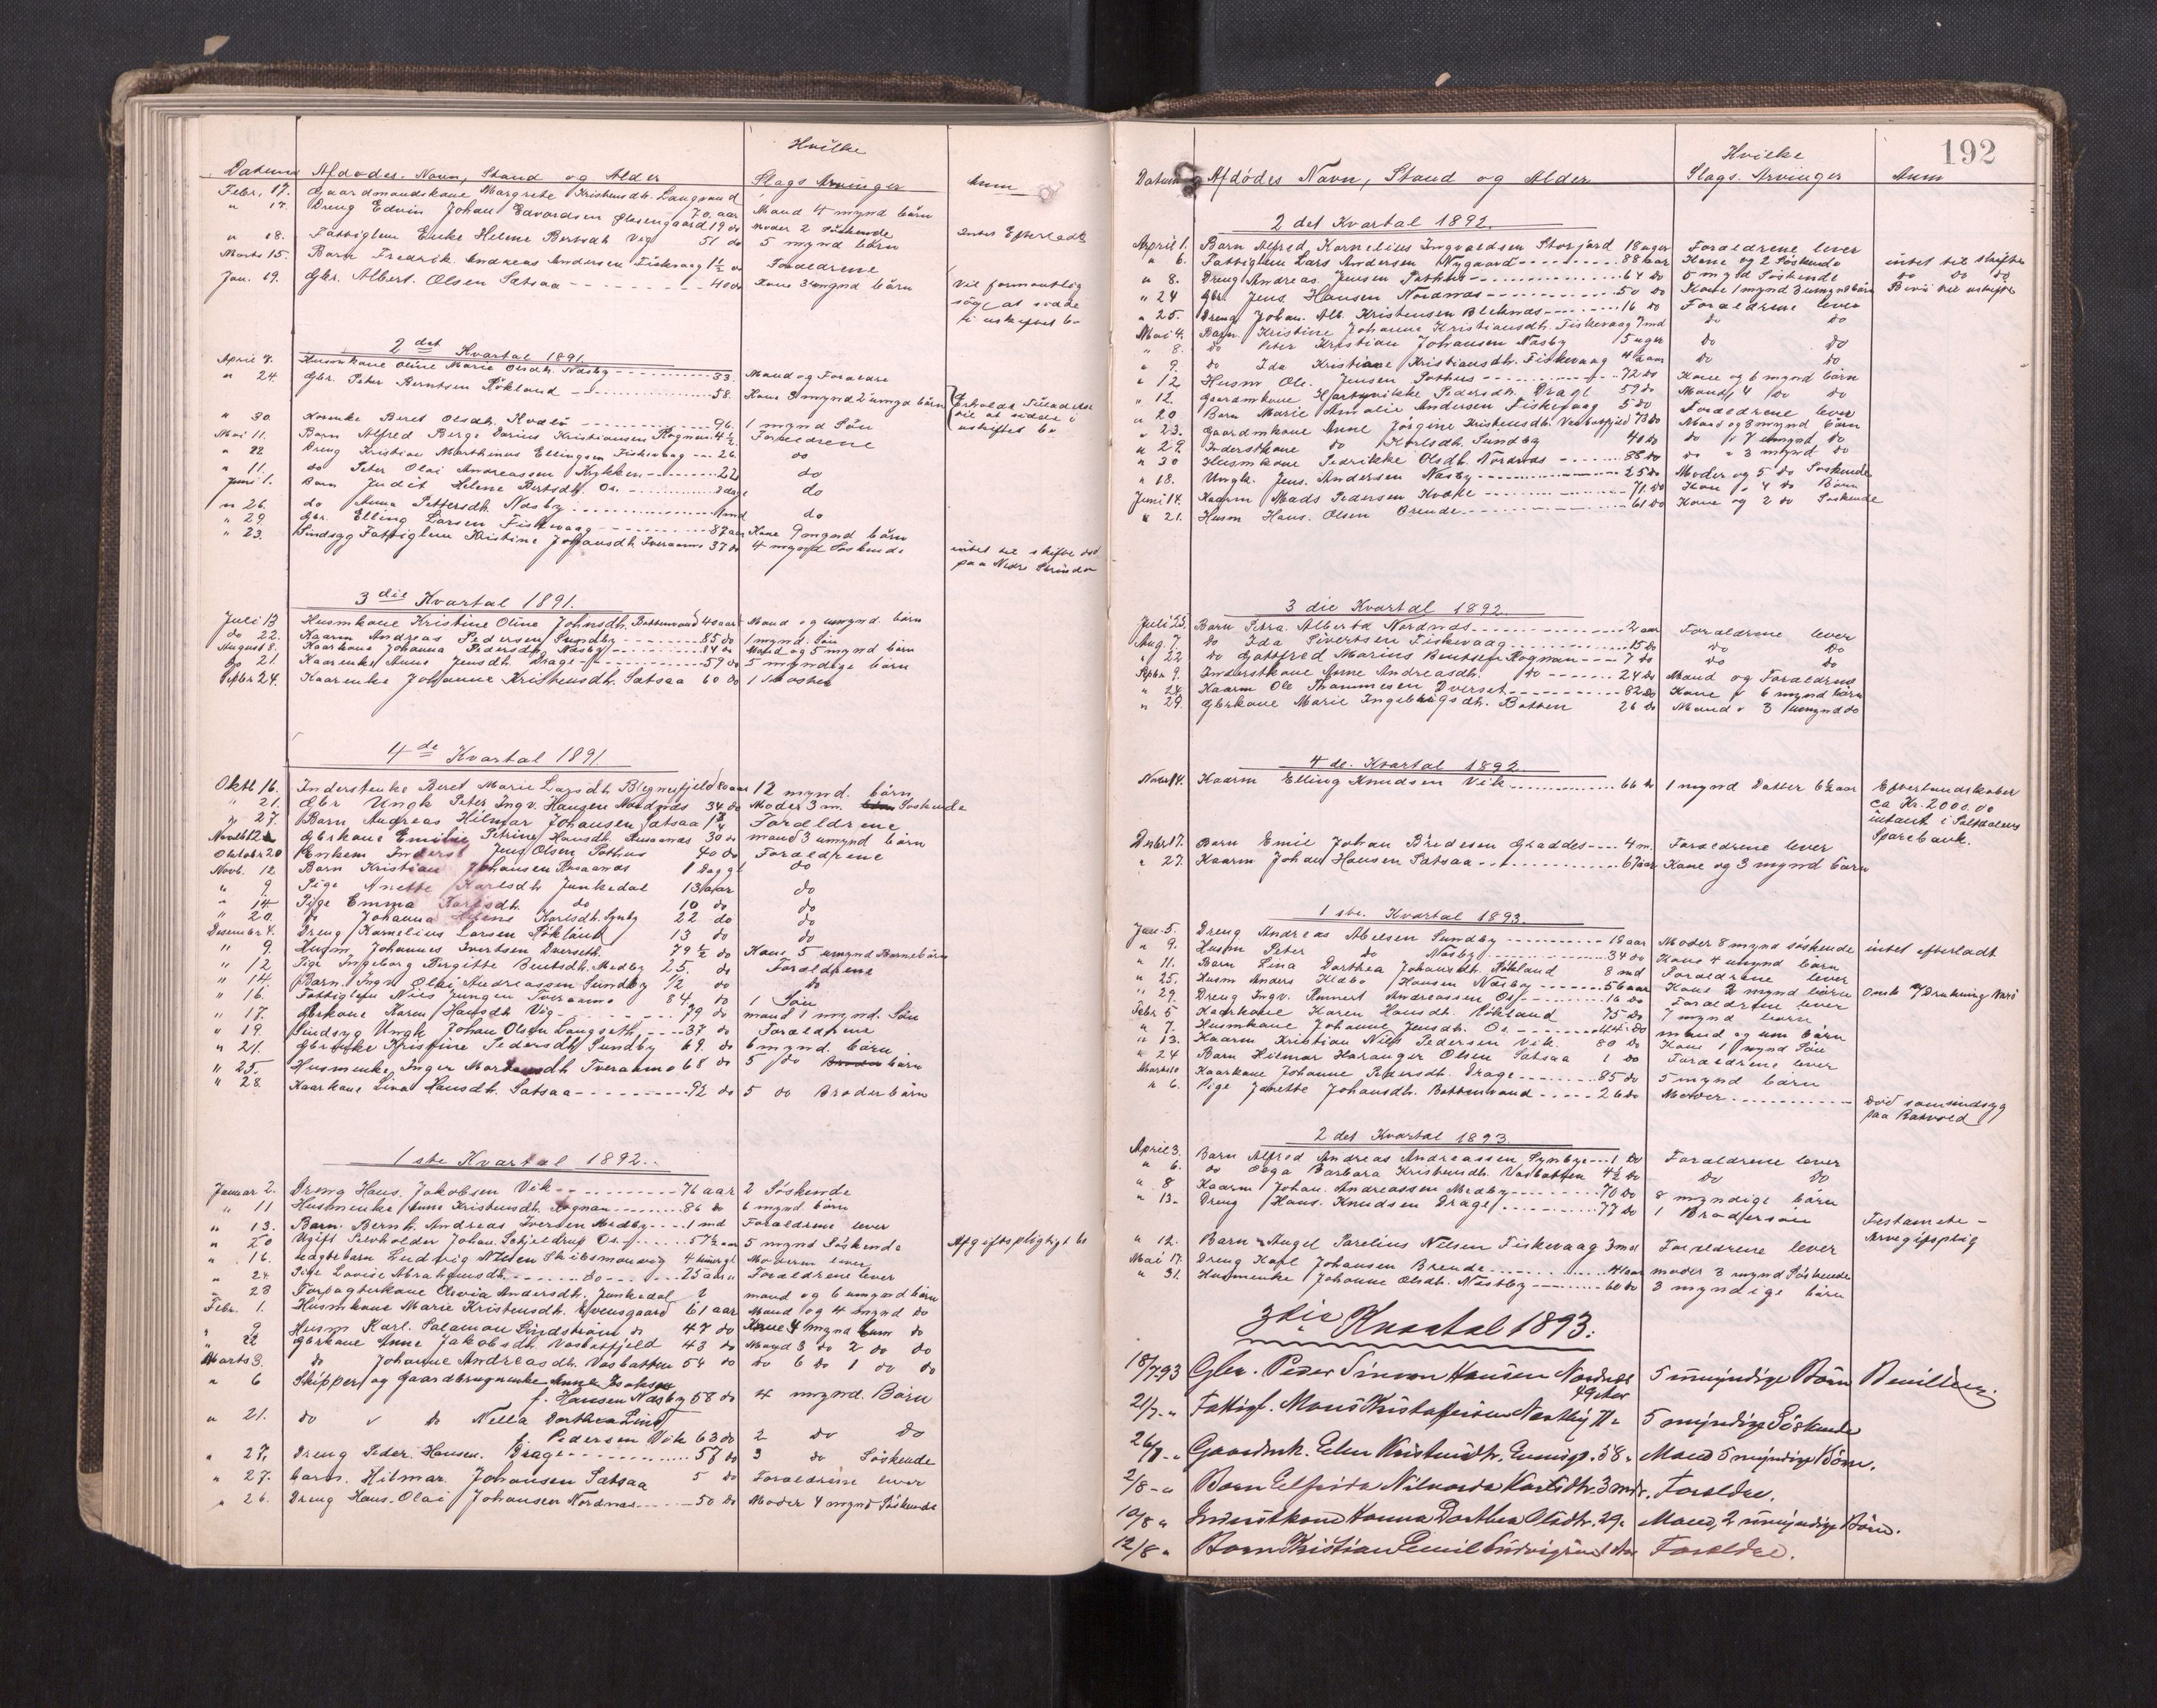 Hvilke
Datum Afdødes Navn, Stand og Alder Slags Arvinger Anm
Febr. 17. Gaardmandskone Margrete Kristensdh. Langsand 70 aar Mand 4 mynd børn
" 17. Dreng Edvin Johan Edvardsen 19 do Moder 2 Søskende
" 18. Fattiglem Enke Helene Berntsdh Vig 51 do 5 mynd børn Intet Efterladt
Marts 15. Barn Fredrik Andreas Andersen Fiskvaag 1½ Forældrene
Jan. 19. Gbr. Albert Olsen Satsaa 40 do Kone 3 umynd børn Vil formentlig
søge at sidde
i uskiftet bo
2det Kvartal 1891.
April 7. Husmkone Oline Marie Olsdh. Næsby 33. Mand og Forældre
" 24. Gbr. Peter Berntsen Røkland 58. Kone 3 mynd 2 umynd børn Erholdt Tilladelse
til at sidde i
uskiftet bo
" 30. Beret Olsdh. 96. 1 mynd Søn
Mai 11. Barn Alfred Berge Darius Kristiansen Rognan 4½ Forældrene
" 22 Dreng Kristian Marthinus Ellingsen Fiskvaag 26. do
" 11. do Peter Olai Andreassen Nykken 22 do
Juni 1. Barn Judit Helene Berntsdh. Os. do
" 26. do Anna Pettersdh. Næsby 1 md do
" 29. Gbr. Elling Larsen Fiskevaag 87 aar Kone 9 mynd børn
" 23. Sindssyg Fattiglem Kristine Johansdh 37 do 4 mynd Søskende intet til skifte død
paa
3die Kvartal 1891.
Juli 13 Husmkone Kristine Oline Johnsdh. Bottenvand 40 aar Mand og umynd. børn
do 22. Kaarm Andreas Pedersen Sundby 85 do 1 mynd. Søn
August 8. Kaarkone Johanna Pedersdh Næsby 84 do Mand og 5 mynd børn
do 21. Kaarenke Anne Jensdh. Drage 59 do 5 myndige børn
Septbr 24. Kaarenke Johanne Kristensdh. Satsaa 60 do 1 Søster
4de Kvartal 1891
Oktb. 16. Inderstenke Beret Marie Larsdh 80 aar 12 mynd. børn
" 21. Gbr Ungk Peter Ingv. Hansen Nordnæs 34 do Moder 3 m. Søskende
" 27. Barn Andreas Hilmar Johansen Satsaa 1¾ Forældrene
Gbrkone Emilie Petrine Hansdh. 30 do mand 3 umynd børn
Oktober 20 Jens Olsen Pothus 40 do Forældrene
Novb. 12 Barn Kristian Johansen 1 Dag gl do
" 9. Pige Anette Karlsdh Junkedal 13 aar do
" 14 Pige Emma Karlsdh. do 10 do do
" 20. do Johanna Helene Karlsdh. 22 do do
Desember 4. Dreng Kornelius Larsen Røkland 13 do do
" 9. Husm Johannes Ivertsen Dverseth 79½ do Kone 5 umynd Barnebørn
" 12 Pige Ingeborg Birgitte Bentsdh. Medby 25. do Forældrene
" 14. Barn. Ingv Olai Andreassen Sundby ½ do do
" 16. Fattiglem Nils Tveraamo 84 do 1 Søn
" 17. Gbrkone Karen Hansdh Vig 79 do mand 1 mynd. Søn
" 19. Sindsyg Ungk Johan Olsen Langseth 37 do Forældrene
" 21. Gbrenke Kristine Pedersdh Sundby 69. do 6 mynd. børn
" 25. Husmenke Inger Tveraamo 68 do 5 do børn
" 28 Kaarkone Lina Hansdh. Satsaa 92 do 5 do Broderbørn
1ste Kvartal 1892.
Januar 2. Dreng Hans. Jakobsen Vik 76 aar 2 Søskende
" 11 Husmenke Anne Kristensdh. Rognan 86 do 6 mynd. børn
" 13. Barn. Bernh. Andreas Iversen Medby 1 md Forældrene lever
" 20 Ugift Selvholder Johan Schjeldrup Os. 57½ aar 5 mynd Søskende Afgiftspligtigt bo
" 16. uægtebarn Ludvig Nilsen Moderen lever
" 24. Pige Lovise Abrahamsdh. do 25 aar Forældrene lever
" 28 Forpagterkone Andersdh. Junkedal mand og 6 umynd børn
Febr. 1. Husmkone Marie Kristensdh. Evensgaard 61 aar Mand og 4 mynd do
" 9 Husm Karl. Salamon Lindstrøm do 47 do Kone 4 mynd do
" 22 Gbrkone Anne Jakobsdh. Vasbotfjeld 43 do Mand 3 do 2 do do
Marts 3. do Johanne Andreasdh. Vasbotten 54 do do 6 do 1 do do
" 6 Skipper og Gaardbrugenke Anne Isaksen
f. Hansen Næsby 58 do 4 mynd. Børn
" 21. do v do Nella Dorthea Lind
f. Pedersen Vik 63 do 2 do do
" 27. Dreng Peder. Hansen. Drage 57 do 3 do Søskende
" 27. barn. Hilmar. Johansen Satsaa 5 do Forældrene lever
" 26. Dreng Hans. Olai Johansen Nordnæs 50 do Moder 4 mynd Søskende
192
Hvilke
Datum Afdødes Navn, Stand og Alder Slags. Arvinger Anm
2det Kvartal 1892.
April 1. Barn Alfred Kornelius Ingvaldsen Storjord 18 uger Forældrene lever
" 6. Fattiglem Lars Andersen Nygaard 88 aar Kone og 2 Søskende intet til skifte
" 8. Dreng Andreas Jensen Pothus 64 do 5 mynd Søskende do do do
" 24 Gbr. Jens Hansen Nordnæs 50 do Kone 1 mynd 3 umynd børn Bevil til uskifte
" 25. Dreng Johan. Alb. Kristensen 16 do Forældrene lever
Mai 4. Barn Kristine Johanne Kristiansdh. Fiskevaag 7 md do do
" 8. do Peter Kristian Johansen Næsby 5 uger do do
" 9. do Ida Kristiane Kristiansdh. Fiskevaag 4 aar do do
" 12 Husm Ole. Jensen Pothus 72 do Kone og 6 mynd børn
" 12. Gaardmkone Pedersdh. Drage 59 do Mand 4 do do
" 20 Barn Marie Amalie Andersen Fiskevaag 5 do Forældrene lever
" 23. Gaardmkone Anne Jørgine Kristensdh. Vasbotfjeld 73 do Mand og 8 mynd børn
" 29. Inderstkone do Karlsdh. Sundby 40 do do " 7 umynd do
" 30 Husmkone Fedrikke Olsdh. Nordnæs 88 do do " 3 mynd do
" 18. Ungk. Jens. Andersen Næsby 25 do Moder og 5 do Søskende
Juni 14. Kaarm Mads Pedersen 71 do Kone " 4 do Børn
" 21. Husm Hans. Olsen Brende 61 do Kone og 2 do Søskende
3die Kvartal 1892.
Juli 25. Barn Petra. Alberta Nordnæs 2 aar Forældrene lever
Aug. 7. do Ida Sivertsen Fiskevaag 15 do do do
" 22 do Gottfred Marius Bentsen Rognan 7 do do do
Septbr 9. Inderstkone Anne Andreasdh. do 24 do Mand og Forældrene
" 24. Kaarm Ole Thommesen Dverset 82 do Kone " 6 mynd børn
" 29. Gbrkone Marie Ingebrigsdh. Botten 26 do Mand " 3 umynd do
4de. Kvartal 1892.
Novbr 14. Kaarm Elling Knudsen Vik 66 do 1 mynd Datter Efterladenskaber
ca Kr. 2000.00
intant i Saltdalens
Sparebank.
Desbr 17. Barn Emil Johan Bredesen Graddes 4 m. Forældrene lever
" 27. Kaarm Johan Hansen Satsaa 67 aar Kone og 3 mynd børn
1ste. Kvartal 1893.
Jan. 5. Dreng Andreas Abelsen Sundby 18 aar Moder 8 mynd søskende intet efterladt
" 9. Husm Peter do Næsby 34 do Kone 4 umynd børn
" 11. Barn Lina Dorthea Johansdh. Røkland 8 md Forældrene lever
" 25. Husm Anders Hansen Næsby 56 aar Kone 2 mynd børn
" 29. Dreng Ingv. Rennert Andreassen Os 16 do Forældrene lever
Febr. 5 Kaarkone Karen Hansdh. Røkland 75 do 7 mynd børn
" 7. Husmkone Johanne Jensdh. Os. 44 do mand og um børn
" 13. Kaarm Kristian Nils Pedersen Vik. 80 do Kone 1 mynd Søn
" 24 Barn Hilmar Haranger Olsen Satsaa 1 do Forældrene lever
Marts 10 Kaarkone Johanne Pedersdh. Drage 85 do 5 mynd børn
" 6. Pige Janette Johansdh. Bottenvand 26 do Moder Død som sindsyg
paa Rotvold
2det Kvartal 1893.
April 3. Barn Alfred Andreas Andreassen 1 do Forældrene lever
" 6. do Olga Barbara Kristensdh. Vasbotten 4½ do do do
" 8 Kaarm Johan. Andreassen Medby 70 do 8 myndige børn
" 13. Dreng Hans. Knudsen Drage 77 do 1 Brodersøn Testamente -
Arvegifspltig
" 12. Barn Angel Parelius Nilsen Fiskevaag 3 md Forældrene lever
Mai 17. Dreng Karl Johansen Brende 41 aar moder 3 mynd Søskende
" 31. Husmenke Johanne Olsdh. Næstby 60 do 3 myndige børn
3die Kvartal 1893.
18/7 93 Gbr. Peder Simon Hansen Nordnæs 49 Aar 5 umyndige Børn Bevilling.
21/7 " Fattigl. Mons Kristoffersen Næstby 5 myndige Søskende
26/7 " Gaardmk. Elen Kristensdtr. 58 " Mand 5 myndige Børn.
2/8 " Barn Elfrida Nilvarda Karlsdtr. 3 mdr. Forældre.
10/8 " Inderstkone Hanna Dorthea Olsdtr. 29 " Mand, 2 umyndige Børn.
12/8 " Barn Kristian Emil Ludvigsen 1 Aar Forældre.